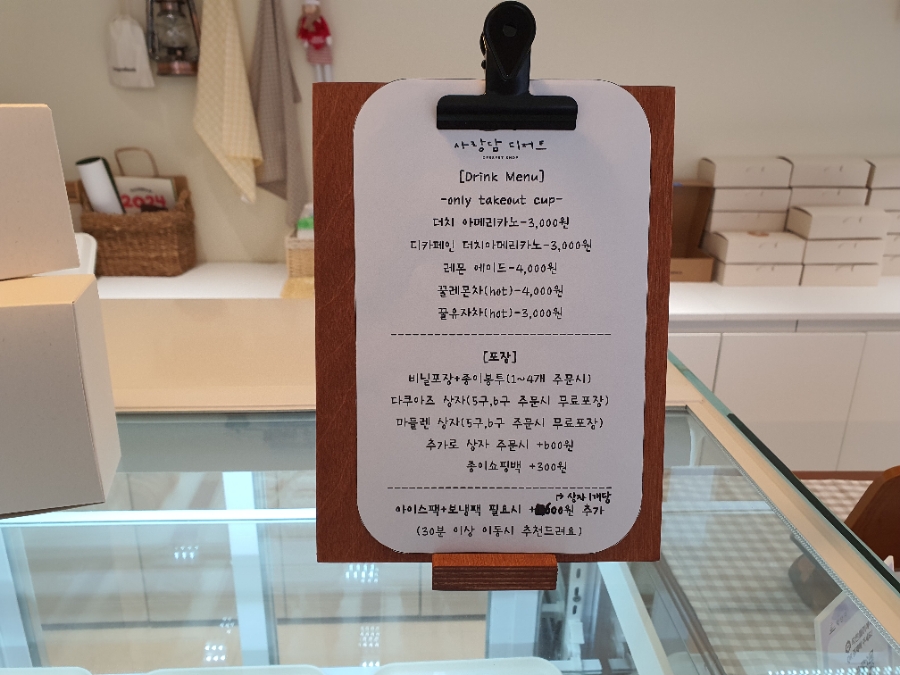 사랑담 디저트
DESSERT SHOP
[Drink Menu]
-only takeout cup-
더치 아메리카노-3,000원
디카페인 더치아메리카노-3,000원
레몬 에이드-4,000원
꿀레몬차(hot)-4,000원
꿀유자차(hot)-3,000원
[포장]
비닐포장+종이봉투(1~4개 주문시)
다쿠아즈 상자(5구,6구 주문시 무료포장)
마들렌 상자(5구,6구 주문시 무료포장)
추가로 상자 주문시 +600원
종이쇼핑백 +300원
↱ 상자 1개당
아이스팩+보냉팩 필요시 +600원 추가
(30분 이상 이동시 추천드려요)
2024